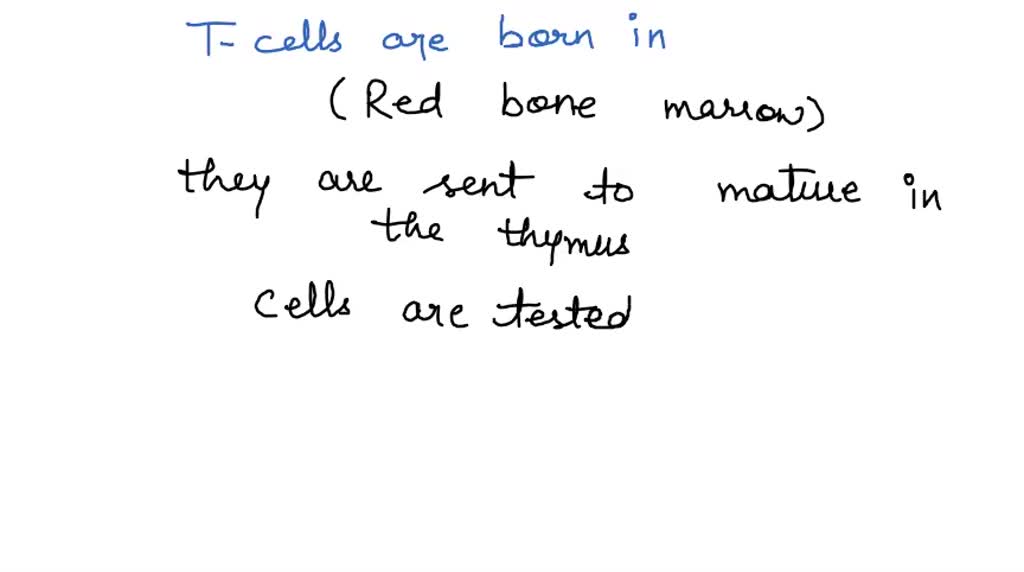 T-cells are born in
(Red bone marrow)
they are sent to mature in
the thymus
cells are tested